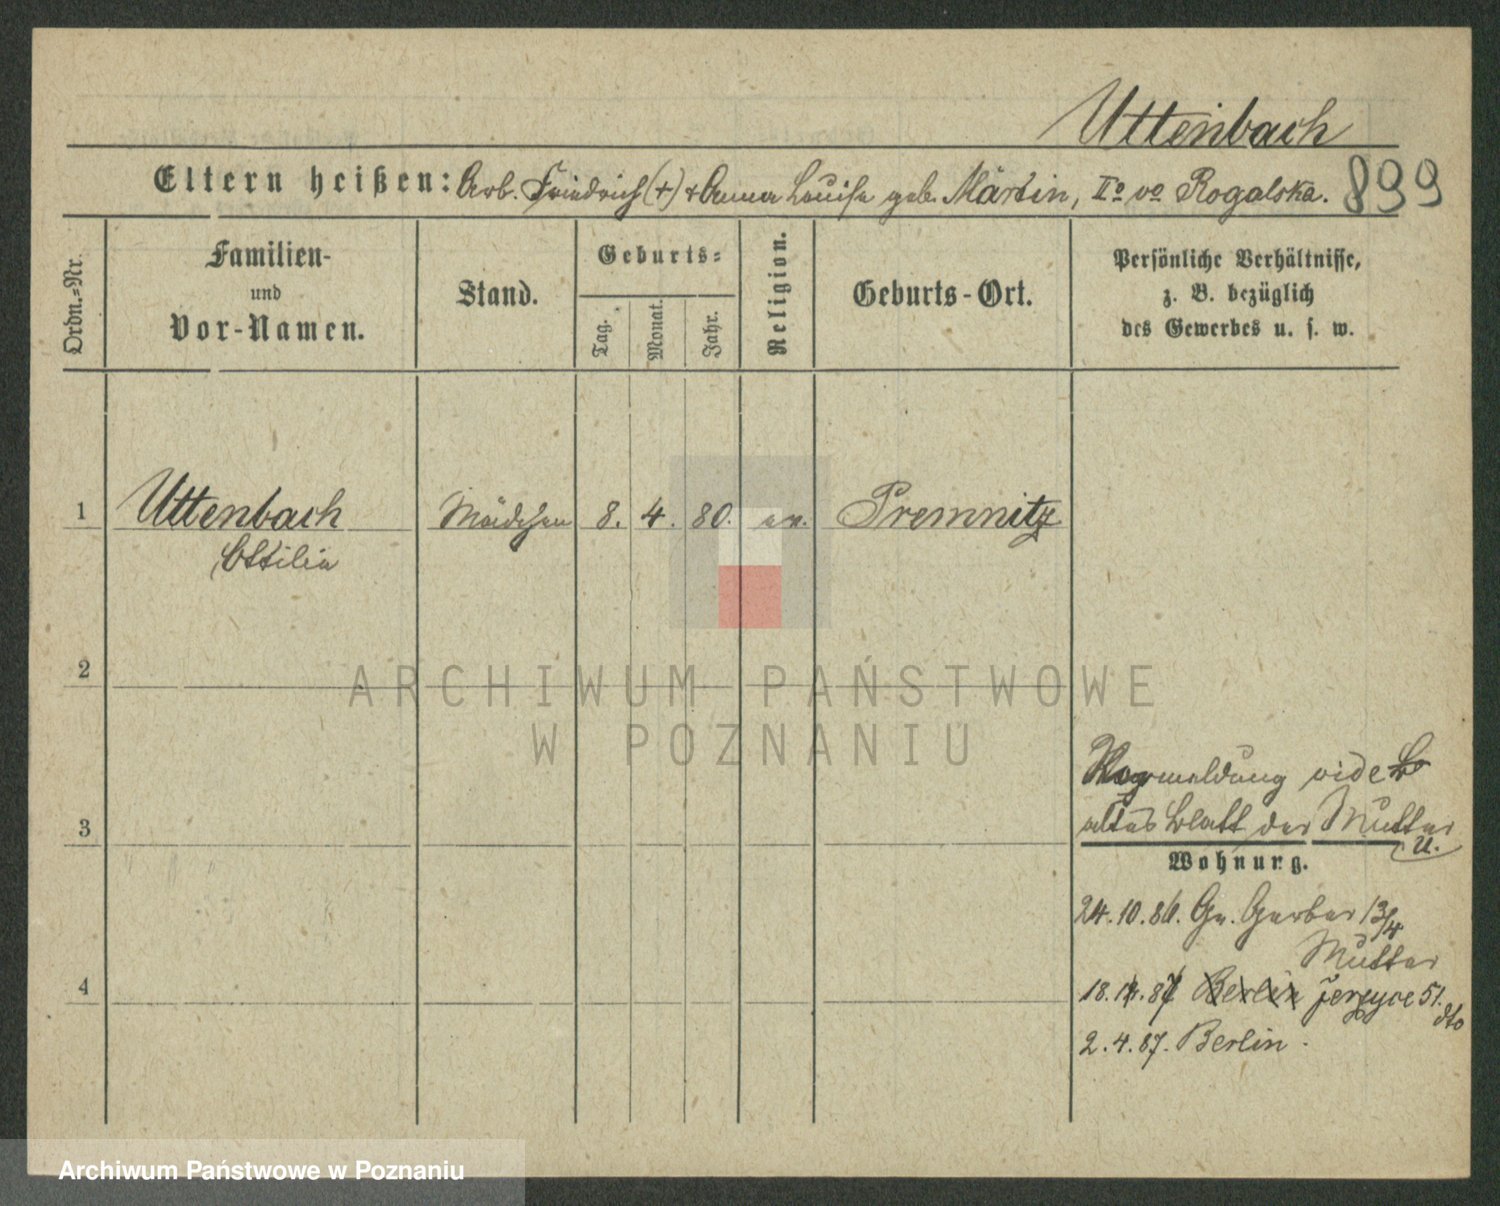 Uttenbach
Eltern heißen: Arb. Friedrich (+) + Anna Louise geb. Märtin, II° vo Rogalska. 899
Ordn.=Nr.
Familien-
und
Vor-Namen.
Stand.
Geburts=
Tag.
Monat.
Jahr.
Religion.
Geburts-Ort.
Persönliche Verhältnisse,
z. B. bezüglich
des Gewerbes u. s. w.
1 Uttenbach Mädchen 8. 4. 80. ev. Premnitz
Ottilie
2
ARCHIWUM PAŃSTWOWE
W POZNANIU
meldung vide
3 altes Blatt der Mutter
U.
Wohnung.
24.10.86. Gr. Gerber 13/4
Mutter
4 18. 87 Berlin Jerzyce 51.
dto
2.4.87. Berlin.
Archiwum Państwowe w Poznaniu